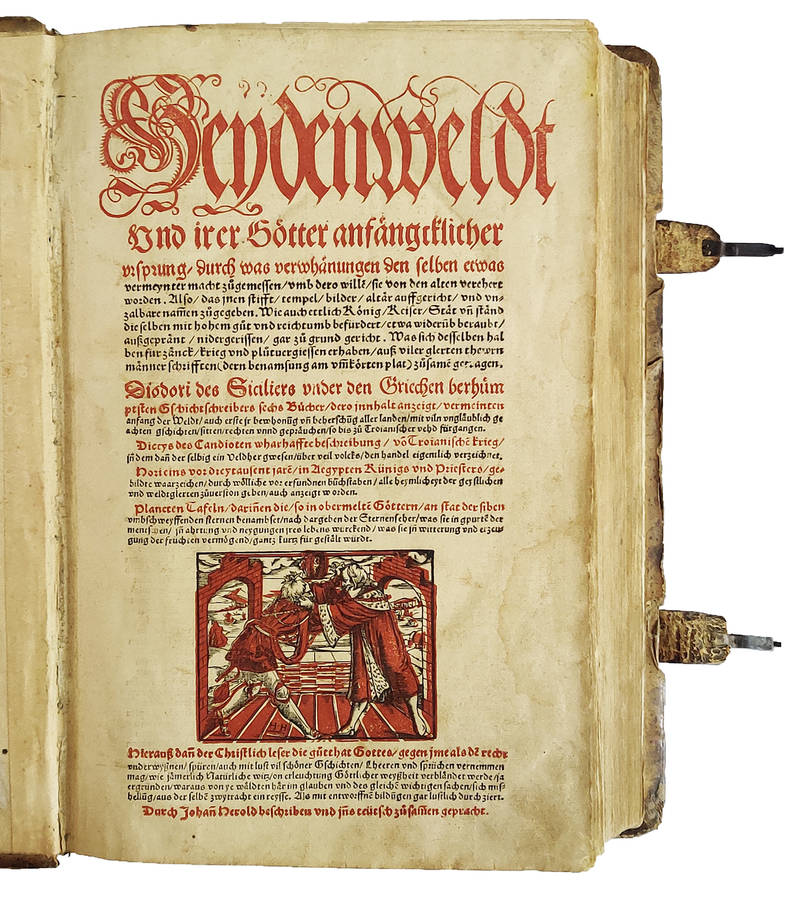 Heÿdenweldt
Vnd irer Götter anfängcklicher
vrsprung/ durch was verwhänungen den selben etwas
vermeynter macht zůgemessen/ vmb dero wille/ sie von den alten verehert
worden. Also/ das jnen stifft/ tempel/ bilder/ altär auffgericht/ vnd vn-
zalbare nam̃en zůgegeben. Wie auch ettlich König/ Keiser/ Stät vñ ständ
die selben mit hohem gůt vnd reichtumb befürdert/ etwa widerüb beraubt/
außgeprānt/ nidergerissen/ gar zů grund gericht. Was sich desselben hal
ben für zänck/ krieg vnd plůtuergiessen erhaben/ auß viler glerten thewrn
männer schrifften (dern benamsung am vm̃körten plat) zůsamē getragen.
Diodori des Siciliers vnder den Griechen berhům
ptsten Gschichtschreibers sechs Bücher/ dero innhalt anzeigt/ vermeinten
anfang der Weldt/ auch erste jr bewhonüg vñ beherschüg aller landen/ mit viln vngläublich ge
achten gschichten/ sitten/ rechten vnnd gepräuchen/ so bis zů Troianischer vehd fürgangen.
Dictys des Candioten wharhaffte beschreibung/ vō Troianischē krieg/
jn dem dañ der selbig ein Veldher gwesen/ über veil volcks/ den handel eigemlich verzeichnet.
Hori eins vor dreytausent jarē/ in Aegypten Künigs vnd Priesters/ ge-
bildte waarzeichen/ durch wölliche vor erfundnen bůchstaben/ alle heymlicheyt der geystlichen
vnd weldtglerten zůuersion geben/ auch anzeigt worden.
Planeten Tafeln/ dariñen die/ so in obermeltē Göttern/ an stat der siben
vmbschweyffenden sternen benambset/ nach dargeben der Sternenseher/ was sie in gpurtē der
menschen/ jñ ahrtung vnd neygungen jres lebens würckend/ was sie jñ witterung vnd erzeu
gung der früchten vermögend/ gantz kurtz für gestält würdt.
HH
Hierauß dañ der Christlich leser die gůtthat Gottes/ gegen jme als dē recht
vnderwyßnen/ spüren/ auch mit lust vil schöner Gschichten/ Lheeren vnd sprüchen vernemmen
mag/ wie jämerlich Natürliche witz/ on erleuchtung Göttlicher weyßheit verbländet werde/ ja
ergründen/ waraus von ye wäldten här im glauben vnd des gleichē wichtigen sachen/ sich miß-
hellüg/ aus der selbē zwytracht ein reysse. Als mit entworffnē bildügen gar lustlich durch ziert.
Durch Johañ Herold beschriben vnd jñs teütsch zůsam̃en gepracht.